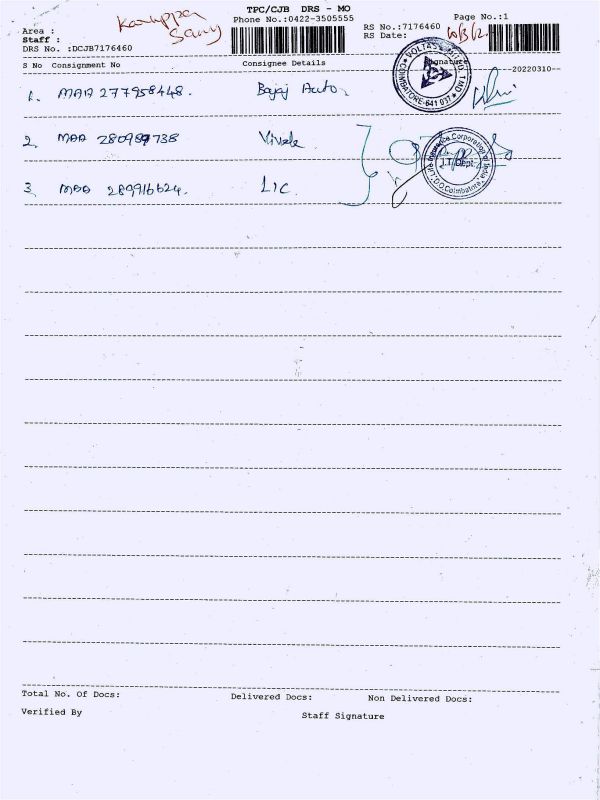 TPC/CJB DRS - MO
Phone No.:0422-3505555
Page No.:1
Area :
Staff :
DRS No. :DCJB7176460
RS No.:7176460
RS Date:
S No Consignment No
Consignee Details
Signature
20220310
1. MAA 277958448.
Bajaj Auto
2. MAA 280989738
3. MAA 289916624.
LIC.
COIMBATORE-641 037
Life Insurance Corporation of India
I.T. Dept.
D.O. Coimbatore
Total No. Of Docs:
Delivered Docs:
Non Delivered Docs:
Verified By
Staff Signature